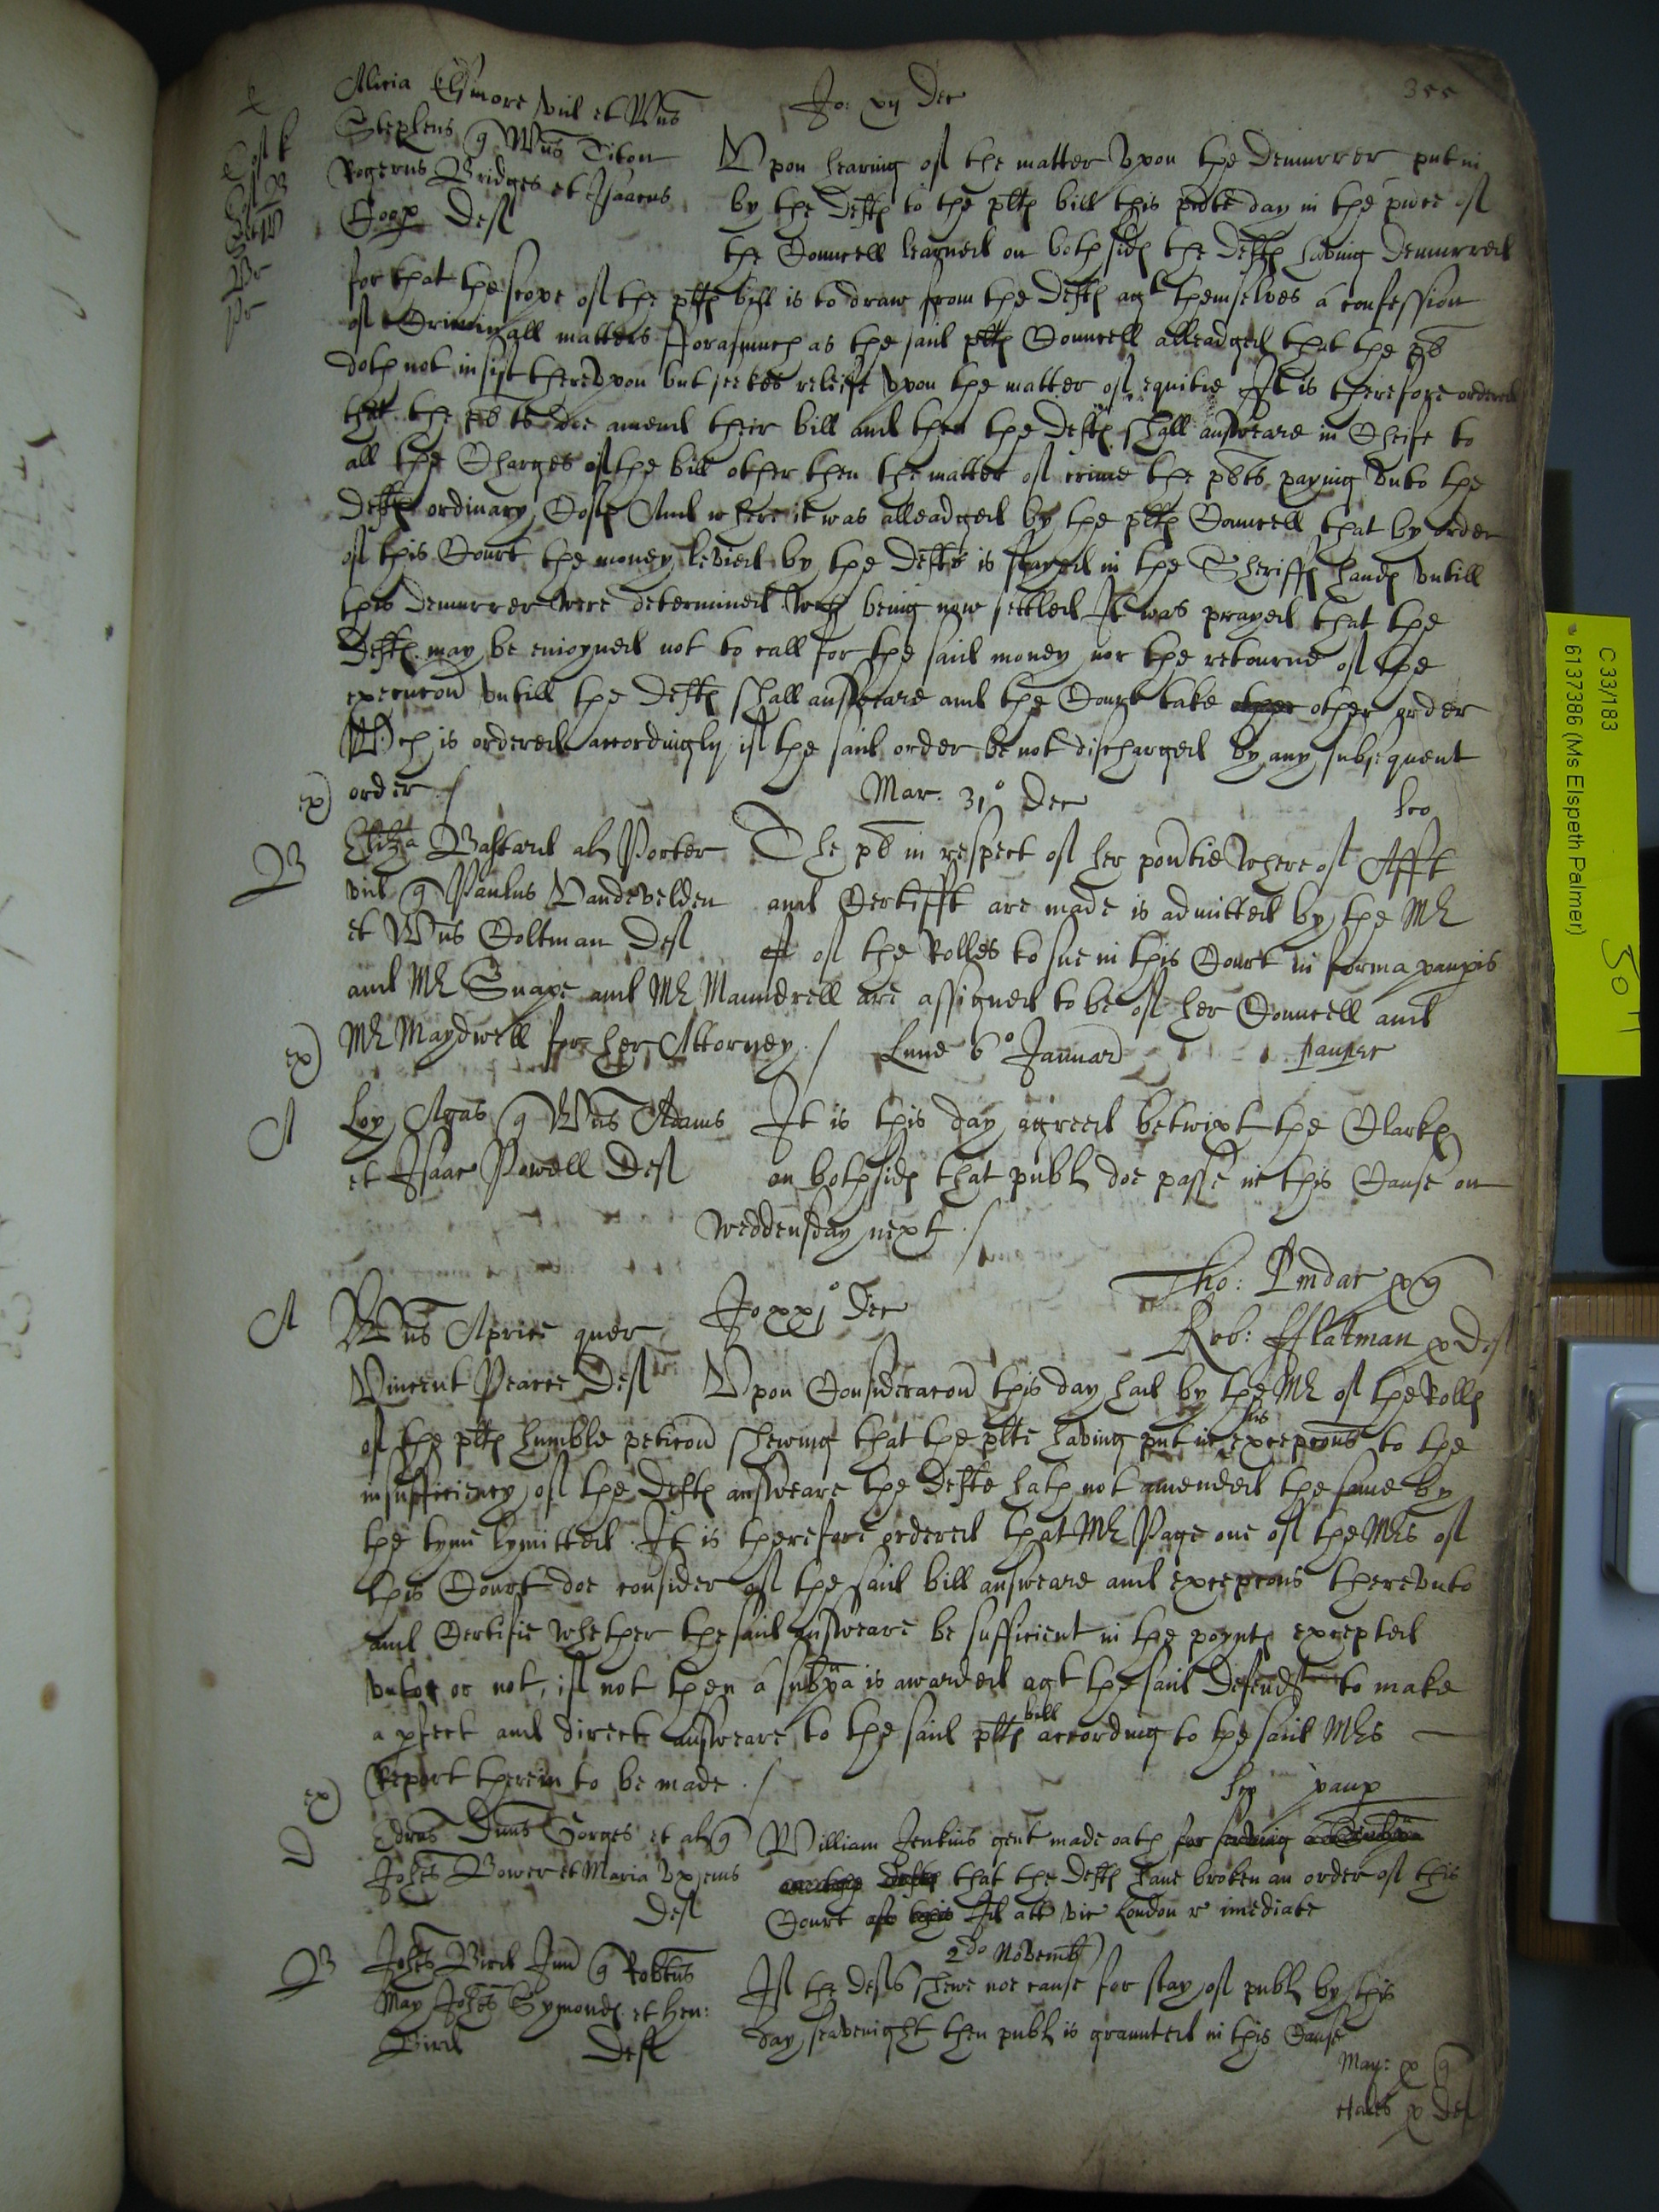 355
Alicia Elsmore vid et Wm̄s
Stephens q Wm̄s Titon
Rogerus Bridges et Isaacus
Deft
Jo: xij Dec
Vpon hearing of the matter vpon the demurrer put in
by the Defts to the plts bill this pñte day in the pñce of
the Councell learned on both sids the Defts having demurred
for that the scope of the plts bill is to draw from the Defts agt themselves a confession
of Criminall matters Forasmuch as the said plts Councell alleadged that the pl
doth not insist therevpon but seekes releife vpon the matter of equitie It is therefore ordered
that the plts doe amend their bill and then the Defts shall answeare in Cheife to
all the Charges of the bill other then the matter of crime the plts paying vnto the
Defts ordinary Costs And where it was alleadged by the plts Councell that by order
of this Court the money levied by the Defts is stayed in the Sheriffs hands vntill
this demurrer were determined wch being now settled It was prayed that the
Defts may be enioyned not to call for the said money nor the retourne of the
execucon vntill the Defts shall answeare and the Court take other order
Wch is ordered accordingly if the said order be not discharged by any subsequent
order /
ex)
Mar: 31° Dec
leo
B
Eliz̃a Bastard als Porter
vid q Paulus Vandevelden
et Wm̄s Coltman Deft
The pl in respect of her pov̄tie whereof Afft
and Certifft are made is admitted by the Mr
of the Rolles to sue in this Court in forma paupis
and Mr Snape and Mr Maundrell are assigned to be of her Councell and
Mr Maydwell for her Attorney /
pauper
ex)
Lune 6° Januar
A
Loy Agas q Wm̄s Adams
et Isaac Powell Deft
It is this day agreed betwixt the Clarks
on both sids that publ doe passe in this Cause on
weddensday next /
Tho: Lindar p q
Rob: Hatman p Def
A
Wm̄s Aprice quer
Vincent Pearce Deft
Jo xxj° Dec
Vpon Consideracon this day had by the Mr of the Rolls
of the plts humble peticon shewing that the plte having put in his excepcons to the
insufficiency of the Defts answeare the Defte hath not amended the same by
the tyme lymitted It is therefore ordered that Mr Page one of the Mrs of
this Court doe consider of the said bill answeare and excepcons therevnto
and Certifie whether the said answeare be sufficient in the poynts excepted
vnto or not, if not then a subp̄a is awarded agt the said Defendt to make
a pfect and direct answeare to the said plts bill according to the said Mrs
Report therein to be made /
ex)
hey paup
D
Edrus Dn̄us Gorges et al q
Johes Bower et Maria vx eius
Deft
William Jenkins gent made oath for serving
that the Defts haue broken an order of this
Court Id att vic London r imediate
B
Johes Bird Jun q Robtus
May Johes Symonds et Hen:
Bird Deft
2do Novemb
If the Defts shewe noe cause for stay of publ by this
day seavenight then publ is graunted in this Cause
May: p q
Hales p Def
C 33/183
6137386 (Ms Elspeth Palmer)